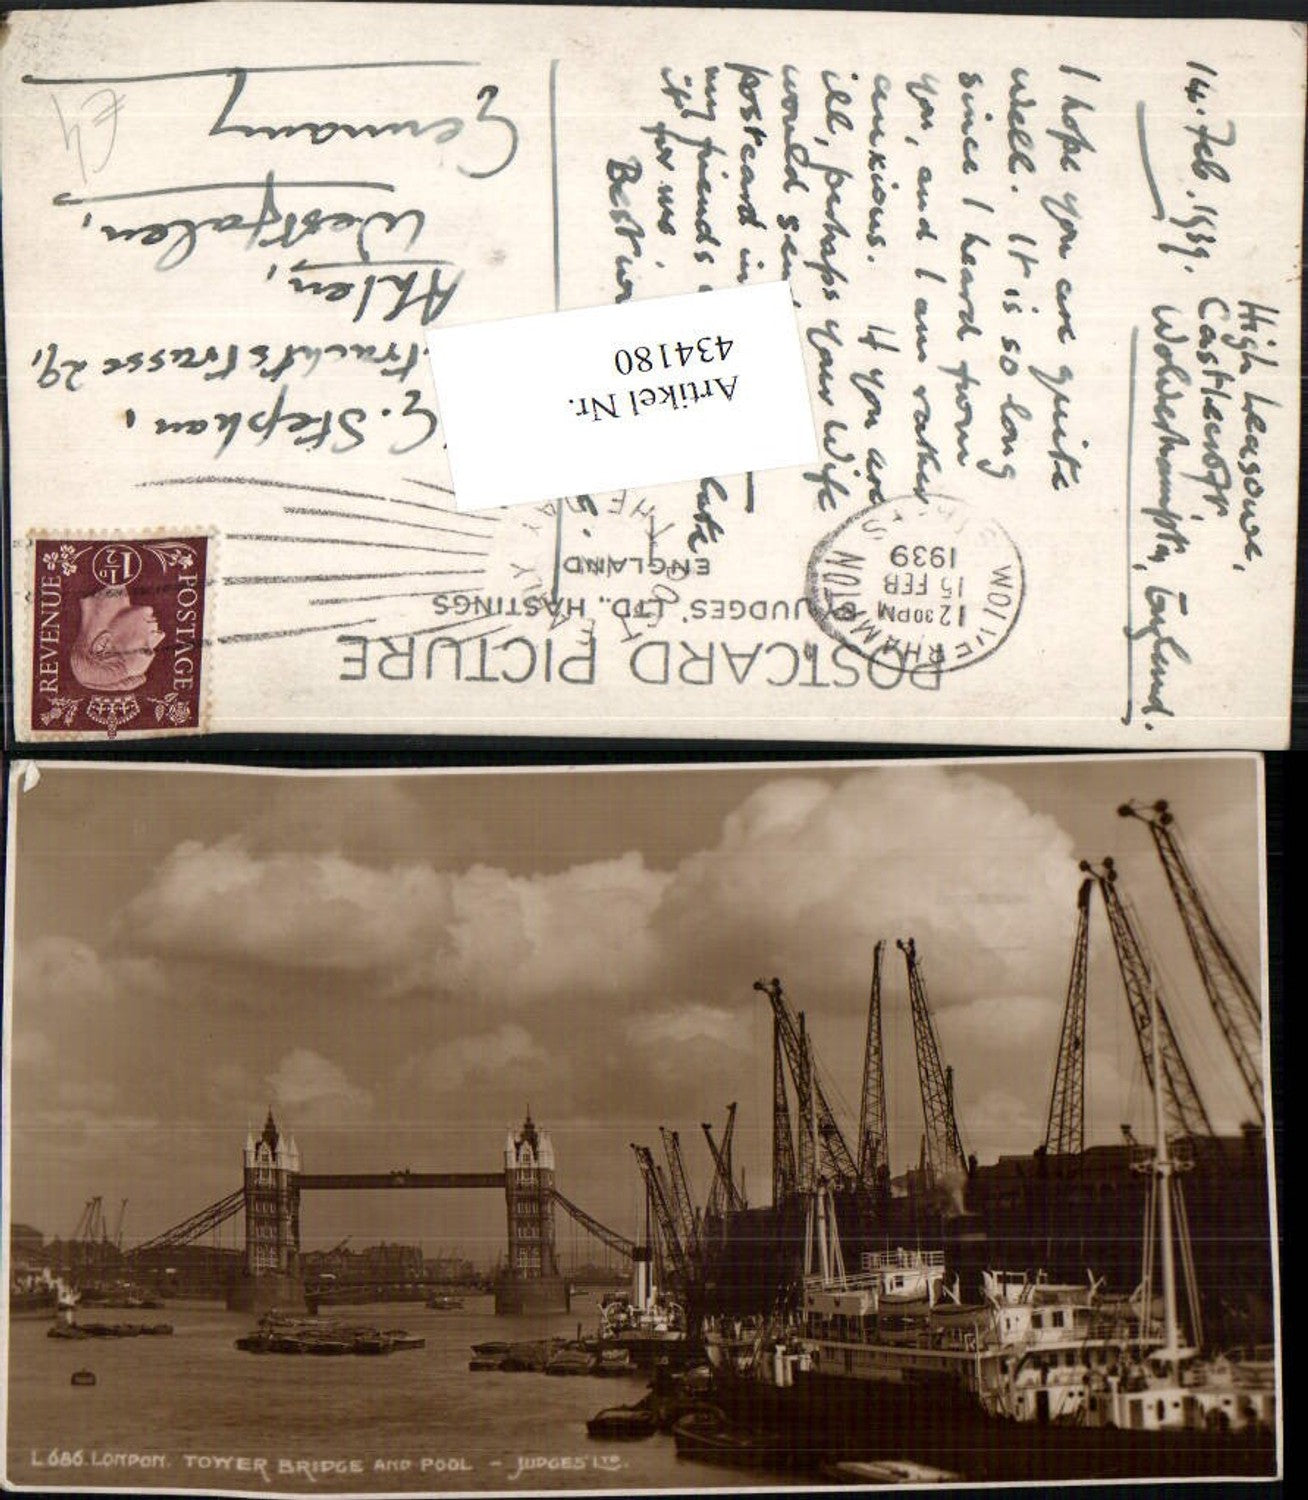 High Leasowe,
Castlecroft
Wolverhampton, England.
14. Feb. 1939.
I hope you are quite
well. It is so long
since I heard from
you, and I am rather
anxious. If you are
ill, perhaps your wife
would
postcard in
my friends
it for me.
Best
G. Stephan,
29,
Ahlen,
Westfalen,
Germany
£4
Artikel Nr.
434180
POSTCARD PICTURE
BY JUDGES' LTD., HASTINGS
ENGLAND
WOLVERHAMPTON
12 30PM
15 FEB
1939
POSTAGE
REVENUE
1½D
L686. LONDON. TOWER BRIDGE AND POOL - JUDGES' LTD.